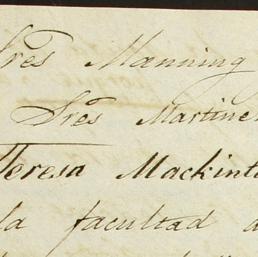 Sres Manning
Sres Martine
Teresa Mackint
la facultad d